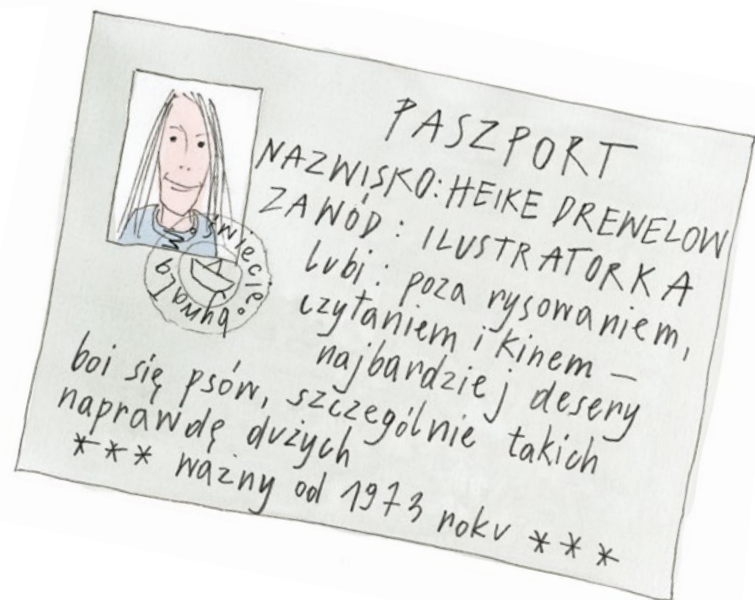 PASZPORT
NAZWISKO: HEIKE DREWELOW
ZAWÓD: ILUSTRATORKA
lubi: poza rysowaniem,
czytaniem i kinem –
najbardziej desery
boi się psów, szczególnie takich
naprawdę dużych
*** ważny od 1973 roku ***
bywała w świecie